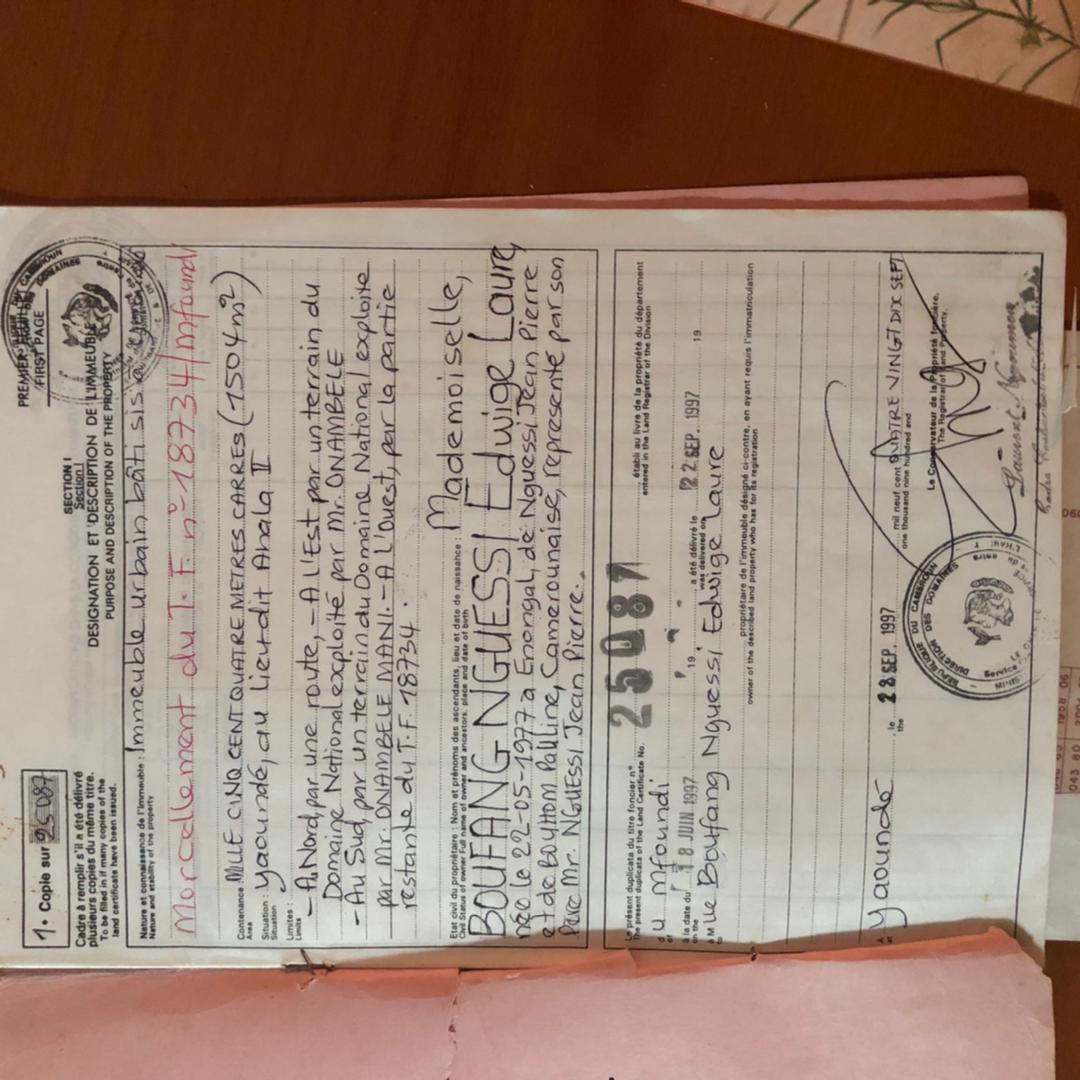 1. Copie sur 25087
Cadre à remplir s'il a été délivré
plusieurs copies du même titre.
To be filled in if many copies of the
land certificate have been issued.
FIRST PAGE
SECTION I
Section I
DESIGNATION ET DESCRIPTION DE L'IMMEUBLE
PURPOSE AND DESCRIPTION OF THE PROPERTY
Nature et connaissance de l'immeuble : Immeuble urbain bâti sis à
Nature and stability of the property
Morcellement du T.F. n° 18734/Mfoundi
Contenance : MILLE CINQ CENT QUATRE METRES CARRES (1504 m²)
Area
Situation : Yaoundé, au lieu dit Ahala II
Situation
Limites : - Au Nord, par une route, - A l'Est par un terrain du
Limits
Domaine National exploité par Mr. ONAMBELE
- Au Sud, par un terrain du Domaine National exploité
par Mr. ONAMBELE MANI. - A l'Ouest, par la partie
restante du T.F. 18734.
Etat civil du propriétaire : Nom et prénoms des ascendants, lieu et date de naissance : Mademoiselle,
Civil Status of owner Full name of owner and ancestors, place and date of birth
BOUFANG NGUESSI Edwige Laure,
née le 22-05-1977 à Enongal, de Nguessi Jean Pierre
et de BOUTTOM Pauline, Camerounaise, représenté par son
Père Mr. NGUESSI Jean Pierre.
Le présent duplicata du titre foncier n° 25087 établi au livre de la propriété du département
The present duplicata of the Land Certificate No. entered in the Land Registrar of the Division
du Mfoundi
of
à la date du 18 JUIN 1997 19 a été délivré le 22 SEP. 1997 19
on the was delivered on
à Mlle Boufang Nguessi Edwige Laure
to
propriétaire de l'immeuble désigné ci-contre, en ayant requis l'immatriculation
owner of the described land property who has for its registration
A Yaoundé le 28 SEP. 1997 mil neuf cent QUATRE VINGT DIX SEPT
at the one thousand nine hundred and
Le Conservateur de la Propriété foncière,
The Registrar of Land Property.
REPUBLIQUE DU CAMEROUN
DIRECTION DES DOMAINES